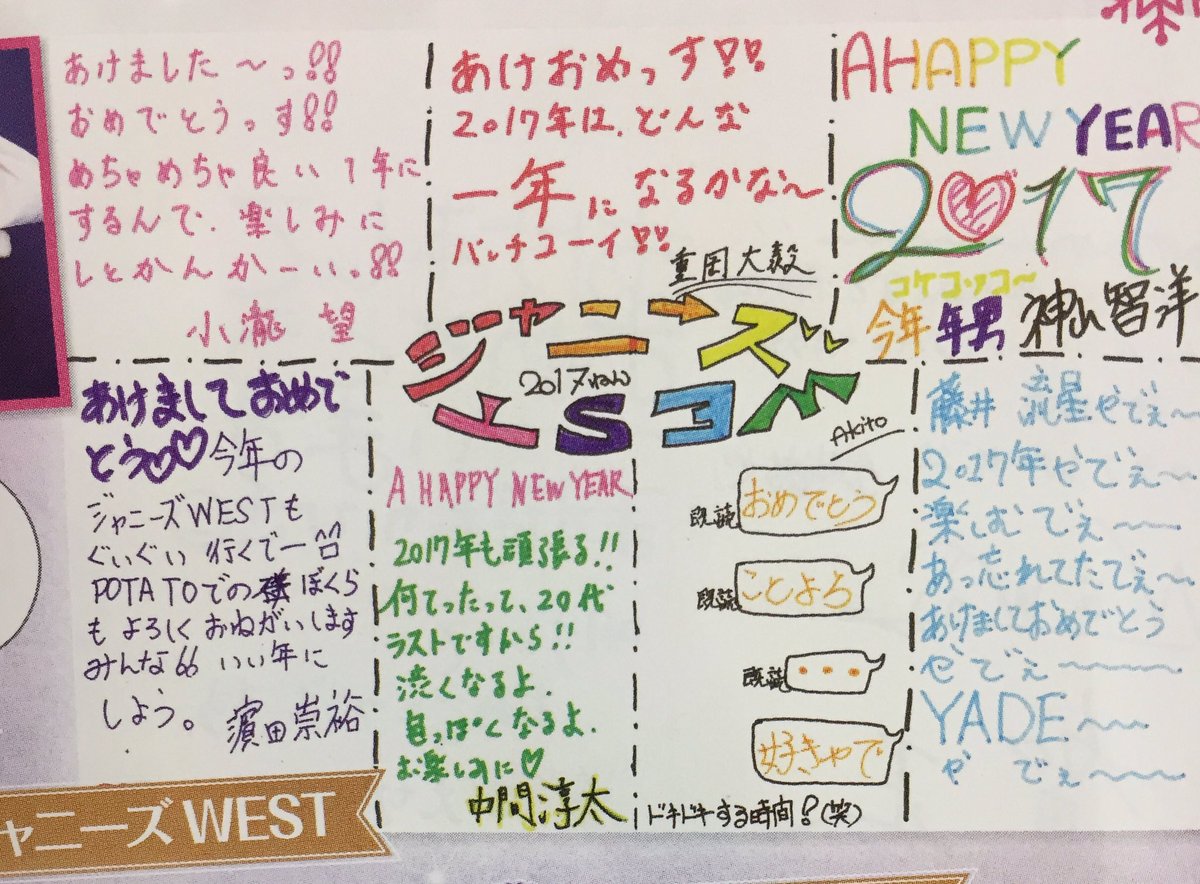 あけました〜っ!!
おめでとうっす!!
めちゃめちゃ良い1年に
するんで、楽しみに
しとかんかーいっ!!
小瀧 望
あけおめっす!!
2017年は、どんな
一年になるかな〜
バッチコーイ!!
重岡大毅
A HAPPY
NEW YEAR
2017
コケコッコー
今年 年男 神山智洋
ジャニーズ
2017ねん
WEST
Akito
あけましておめで
とう♡♡今年の
ジャニーズWESTも
ぐいぐい行くで
POTATOでの ぼくら
もよろしくおねがいします
みんな いい年に
しよう。 濵田崇裕
A HAPPY NEW YEAR
2017年も頑張る!!
何てったって、20代
ラストですから!!
渋くなるよ.
色っぽくなるよ.
お楽しみに♡
中間淳太
既読 おめでとう
既読 ことよろ
既読 ・・・
好きやで
ドキドキする時間?(笑)
藤井 流星やでぇ〜
2017年やでぇ〜
楽しむでぇ〜〜
あっ忘れてたでぇ〜
あけましておめでとう
やでぇ〜〜〜
YADE〜〜
や でぇ〜〜〜
ャニーズWEST